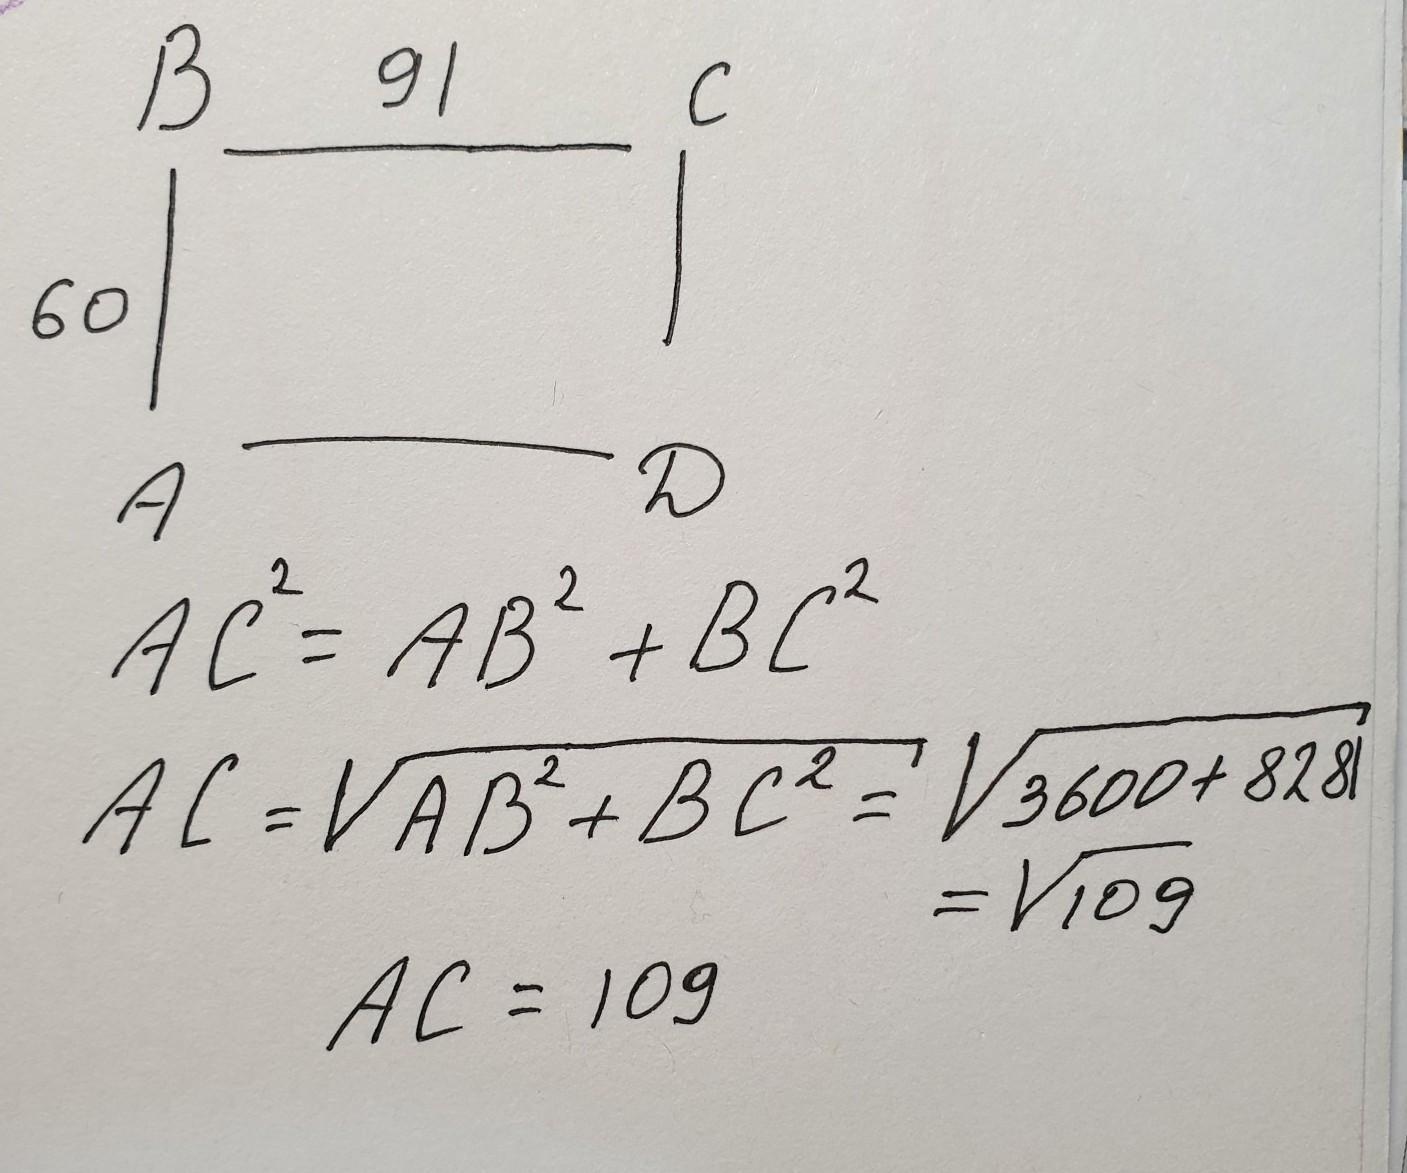 B 91 C
60
A D
AC² = AB² + BC²
AC = √AB² + BC² = √3600 + 8281
= √109
AC = 109